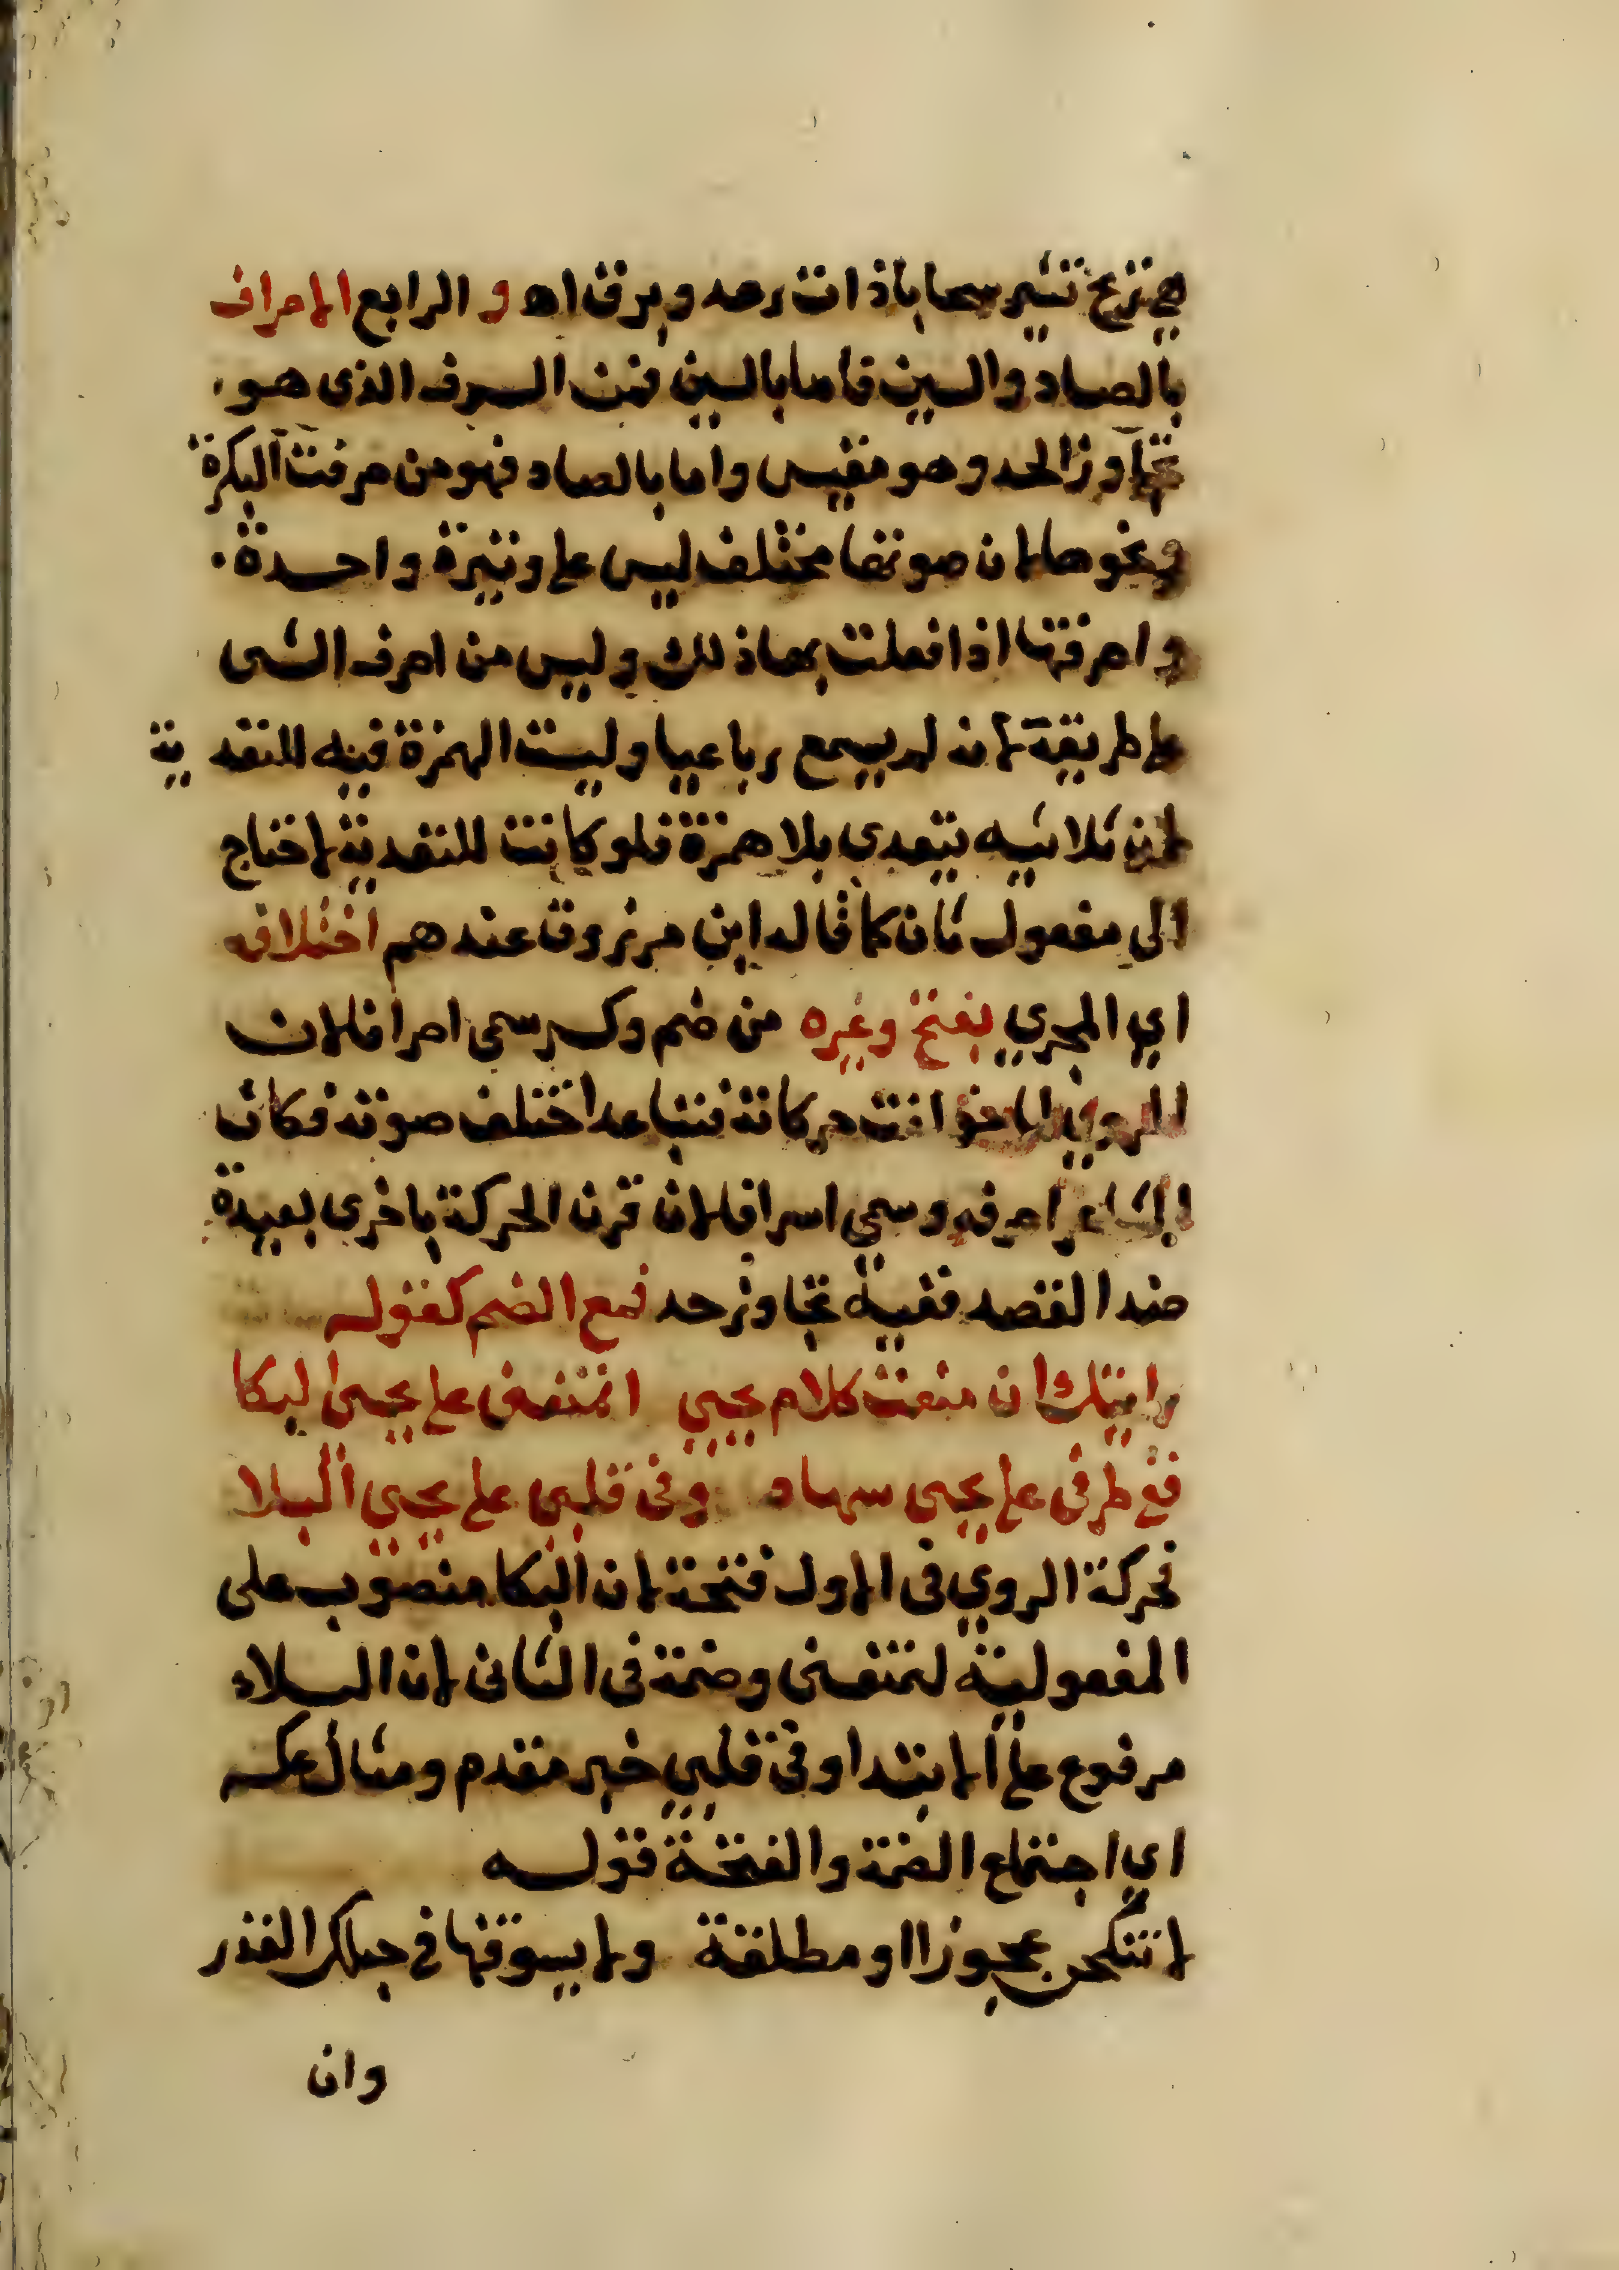 هي ريح تثير سحابا ذات رعد وبرق اه و الرابع الاصراف
بالصاد والسين فاما بالسين فمن السرف الذي هو
تجاوز الحد وهو مقيس واما بالصاد فهو من صرفت البكرة
ونحوها لان صوتها مختلف ليس على وتيرة واحدة
واصرفتها اذا فعلت بها ذلك وليس من اصرف الشى
على طريقة لانه لم يسمع رباعيا وليست الهمزة فيه للتعدية
لان ثلاثيه يتعدى بلا همزة فلو كانت للتعدية لاحتاج
الى مفعول ثان كما قاله ابن مرزوق عندهم اختلافه
اي المجري بفتح وغيره من ضم وكسر سمي اصرافا لان
الروي لما حركاته فتباعد اختلف صوته فكان
الشاعر اصرفه وسمي اسرافا لان قرن الحركة باخرى بعيدة
ضد القصد ففيه تجاوز حد فمع الضم كقوله
رايتك ان منعت كلام يحيى اتمنعنى على يحيى البكا
ففى طرفى على يحيى سهاد وفى قلبى على يحيى البلا
فحركة الروي فى الاول فتحة لان البكا منصوب على
المفعولية لتمنعنى وضمة فى الثانى لان البلاء
مرفوع على الابتدا وفى قلبي خبر مقدم ومثال عكسه
اي اجتماع الضمة والفتحة قوله
لا تنكحن عجوزا او مطلقة ولا يسوقنها في حبلك القدر
وان